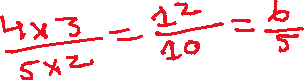 4x3/5x2 = 12/10 = 6/5